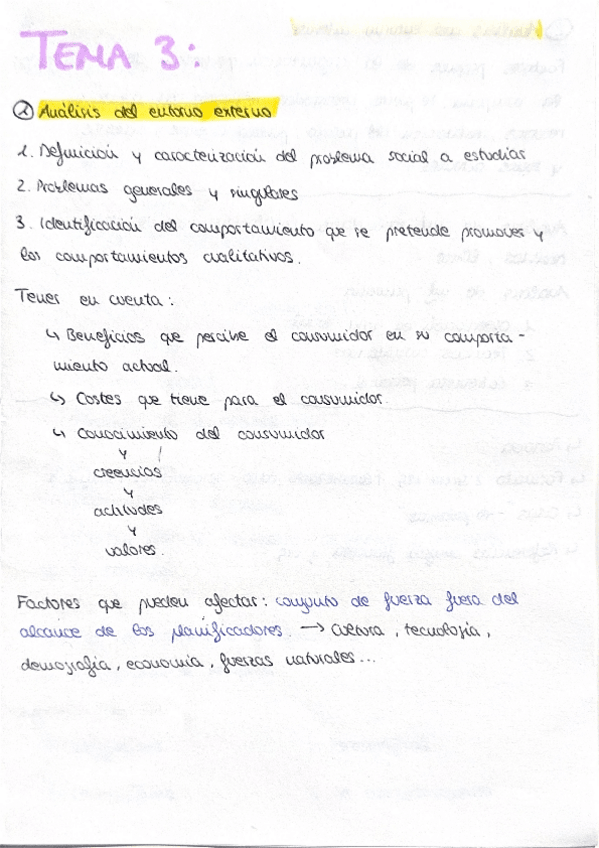 TEMA 3:
① Análisis del entorno externo
1. Definición y caracterización del problema social a estudiar
2. Problemas generales y singulares
3. Identificación del comportamiento que se pretende promover y
los comportamientos cualitativos.
Tener en cuenta:
↳ Beneficios que percibe el consumidor en su comporta-
miento actual.
↳ Costes que tiene para el consumidor.
↳ Conocimiento del consumidor
y
creencias
y
actitudes
y
valores.
Factores que pueden afectar: conjunto de fuerza fuera del
alcance de los planificadores. → Cultura, tecnología,
demografía, economía, fuerzas naturales...